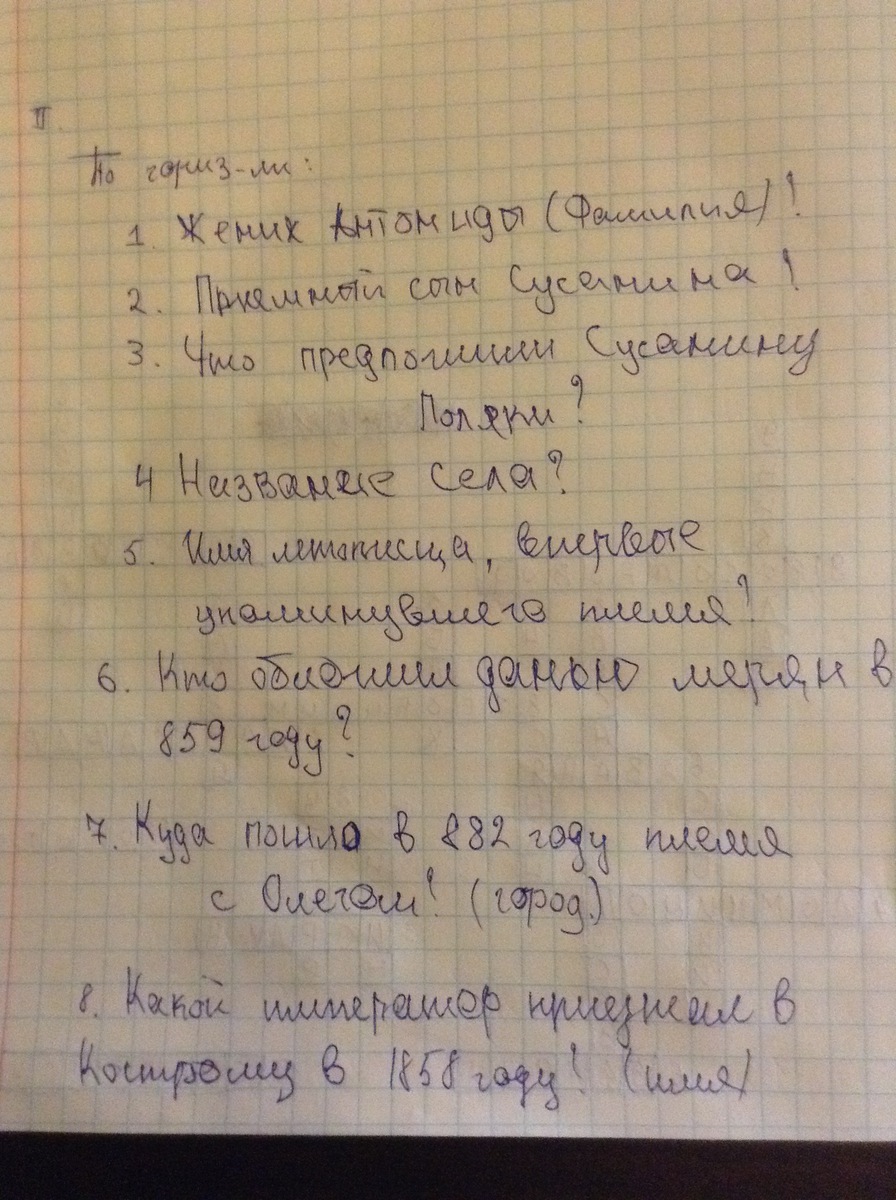 II.
По гориз-ли:
1. Жених Антониды (Фамилия)!
2. Приемный сын Сусанина!
3. Что предложили Сусанину
Поляки?
4 Название села?
5. Имя летописца, впервые
упоминувшего племя?
6. Кто обложил данью мерян в
859 году?
7. Куда пошло в 882 году племя
с Олегом! (город)
8. Какой император приезжал в
Кострому в 1858 году! (имя)